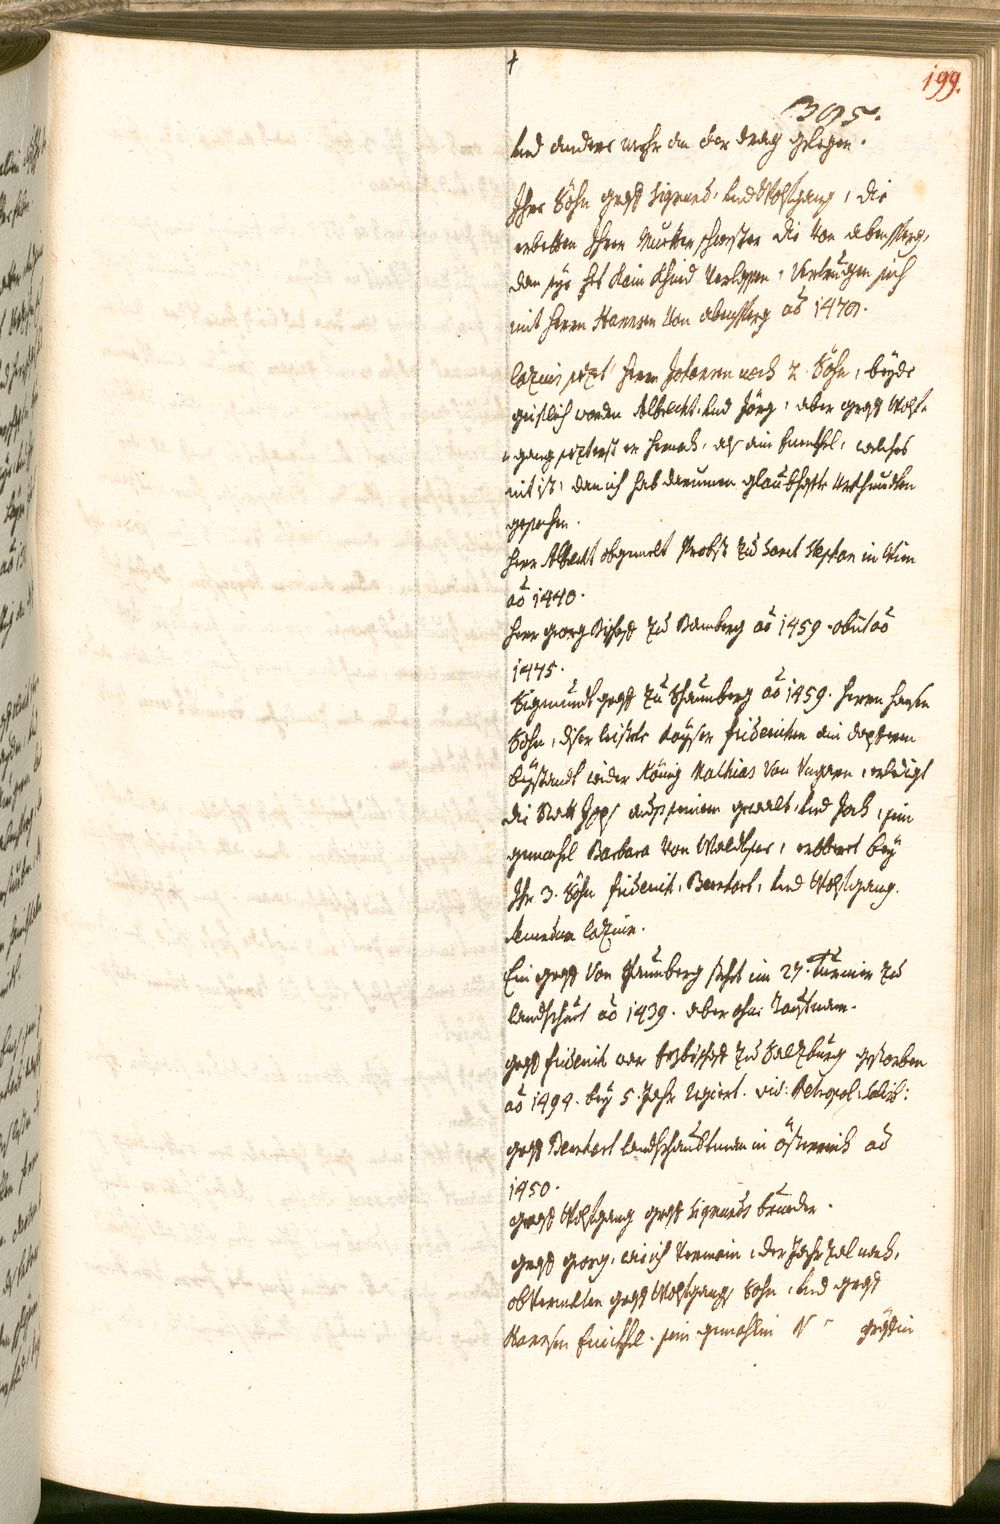 199.
395.
und anders mehr an der Drau gelegen.
Ihre Söhn Graff Sigmund, und Wolfgang, die
erbetten Ihrer Mutter schwester die von Abensperg,
dan sye hat kein khind verlassen, vertrugen sich
mit herrn Hannsen von Abensperg aõ 1470.
Lazius sezt herrn Johannen noch 2. Söhn, beyde
geistlich worden Albrecht und Jörg, aber Graff Wolf-
gang sezt er hernach, als ein Enenkhel, welches
nit ist, dan ich hab darumen glaubhaffte Urkhundten
gesehen.
Herr Albrecht obgemelt Probst zu Sanct Stephan in Wien
aõ 1440.
Herr Georg Bischoff zu Bamberg aõ 1459. obiit aõ
1475.
Sigmundt Graff zu Schaunberg aõ 1459. herrn Hansen
Sohn, diser leistete Kayser Friderichen ein dapferen
beystandt wider König Mathias von Ungarn, erledigt
die Statt Ipps aus seinem gewalt, und Joch, sein
gemahel Barbara von Waldsee, erobert bey
Ihr 3. Söhn Friderich, Bernhart, und Wolfgang.
Lazius.
Ein Graff von Schaunberg steht im 27. Turnier zu
Landshuet aõ 1439. aber ohne Taufnam.
Graff Friderich war Erzbischoff zu Salzburg gestorben
aõ 1494. bey 5. Jahr Regiert. vid: Metropol: Salisb:
Graff Bernhart Landshaubtman in Österreich aõ
1450.
Graff Wolfgang Graff Sigmunds brueder.
Graff Georg, wie ich vermein, der Jahrzal nach,
obvermelten Graff Wolfgangs Sohn, und Graff
Hannsen Enickhl. sein gemahlin N Gräffin